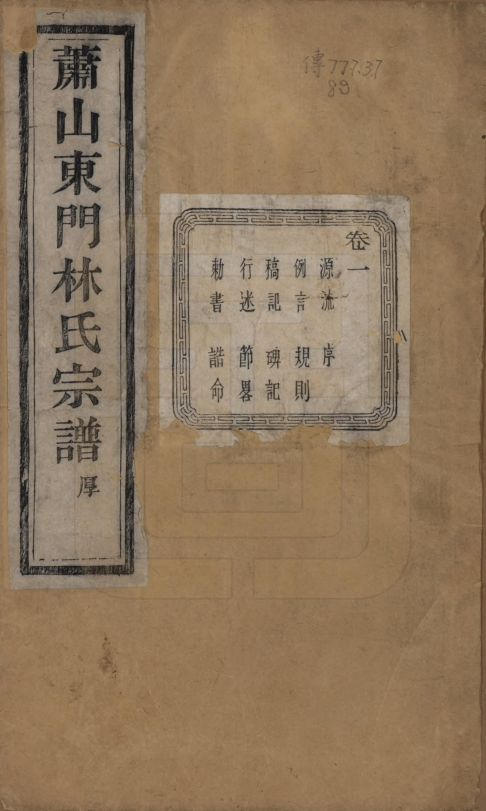 傳777.37
89
卷一
源流 序
例言 規則
稿記 碑記
行述 節畧
勅書 誥命
蕭山東門林氏宗譜
厚